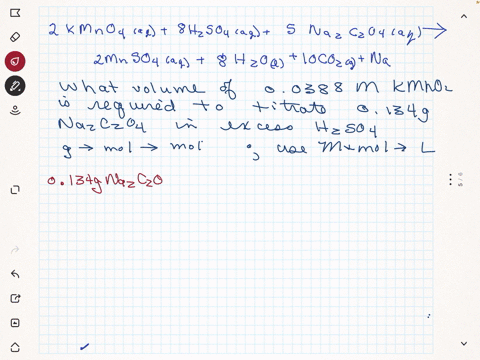 2 KMnO4 (aq) + 8H2SO4(aq) + 5 Na2C2O4(aq) →
2MnSO4(aq) + 8 H2O(l) + 10CO2(g) + Na
What volume of 0.0388 M KMnO4
is required to titrate 0.134g
Na2C2O4 in excess H2SO4
g → mol → mol ; use M+mol → L
0.134g Na2C2O
5/5